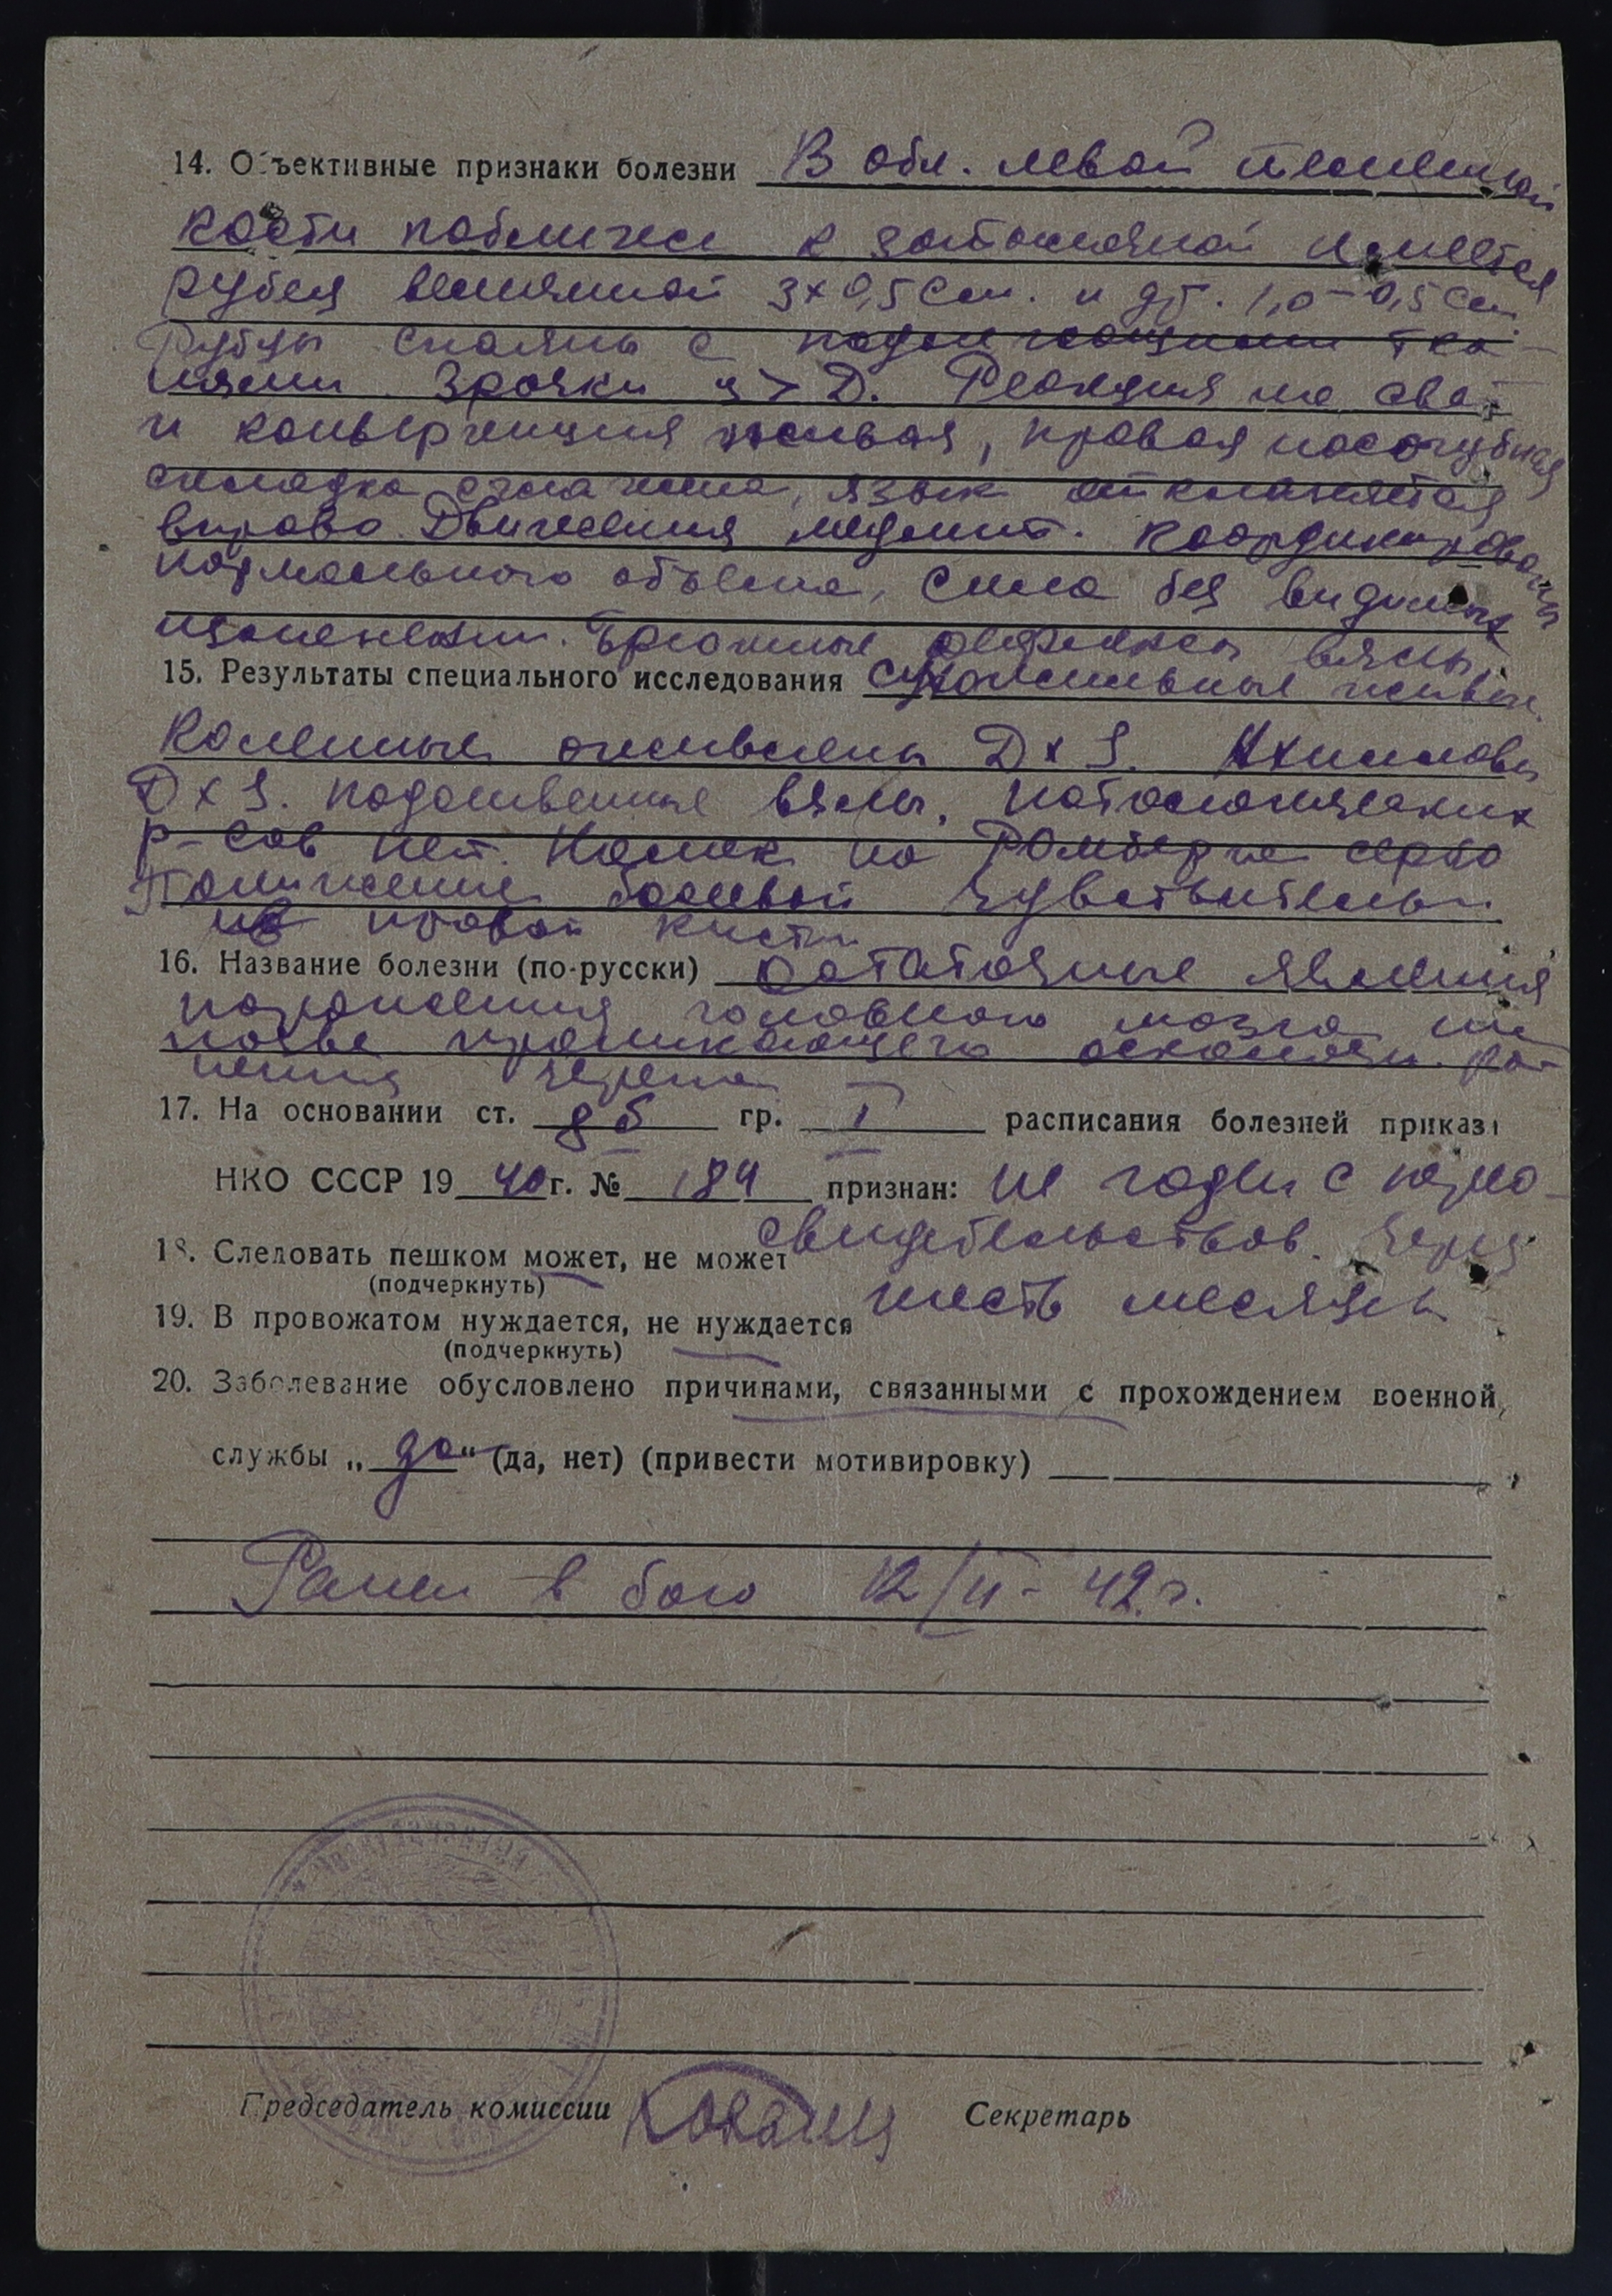 14. Объективные признаки болезни В обл. левой теменной
кости поближе к затылочной имеется
рубец величиной 3х0,5 см. и др. 1,0-0,5 см.
Рубцы спаяны с подлежащими тка-
нями. Зрачки s > D. Реакция на свет
и конвергенция живая, правая носогубная
складка сглажена, язык отклоняется
вправо. Движения координированы
нормального объема, сила без видимых
изменений. Брюшные рефлексы вялы,
15. Результаты специального исследования сухожильные живые.
Коленные оживлены D х S. Ахилловы
D х S. подошвенные вялы, патологических
р-сов нет. Намек на Ромберга
Понижение болевой чувствительн.
на правой кисти
16. Название болезни (по-русски) Остаточные явления
поражения головного мозга на
почве проникающего осколочн. ра-
нения черепа
17. На основании ст. 8б гр. I расписания болезней приказ
НКО СССР 1940 г. № 184 признан: не годен с пере-
свидетельствов. через
18. Следовать пешком может, не может
(подчеркнуть)
шесть месяцев
19. В провожатом нуждается, не нуждается
(подчеркнуть)
20. Заболевание обусловлено причинами, связанными с прохождением военной
службы „да“ (да, нет) (привести мотивировку)
Ранен в бою 12/II-42 г.
Председатель комиссии Секретарь